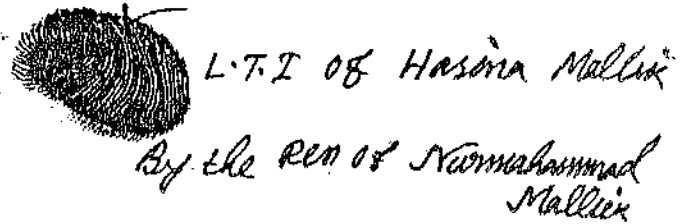 L.T.I of Hasina Mallick
By the Pen of Nurmahammad
Mallick